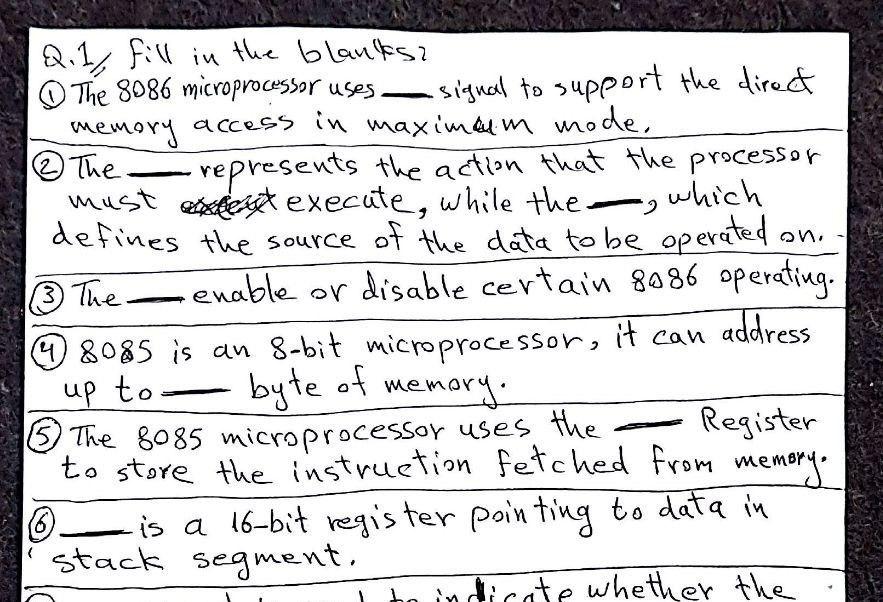 Q.1/ fill in the blanks?
① The 8086 microprocessor uses — signal to support the direct
memory access in maximum mode.
② The — represents the action that the processor
must execute, while the —, which
defines the source of the data to be operated on.
③ The — enable or disable certain 8086 operating.
④ 8085 is an 8-bit microprocessor, it can address
up to — byte of memory.
⑤ The 8085 microprocessor uses the — Register
to store the instruction fetched from memory.
⑥ — is a 16-bit register pointing to data in
stack segment.
to indicate whether the